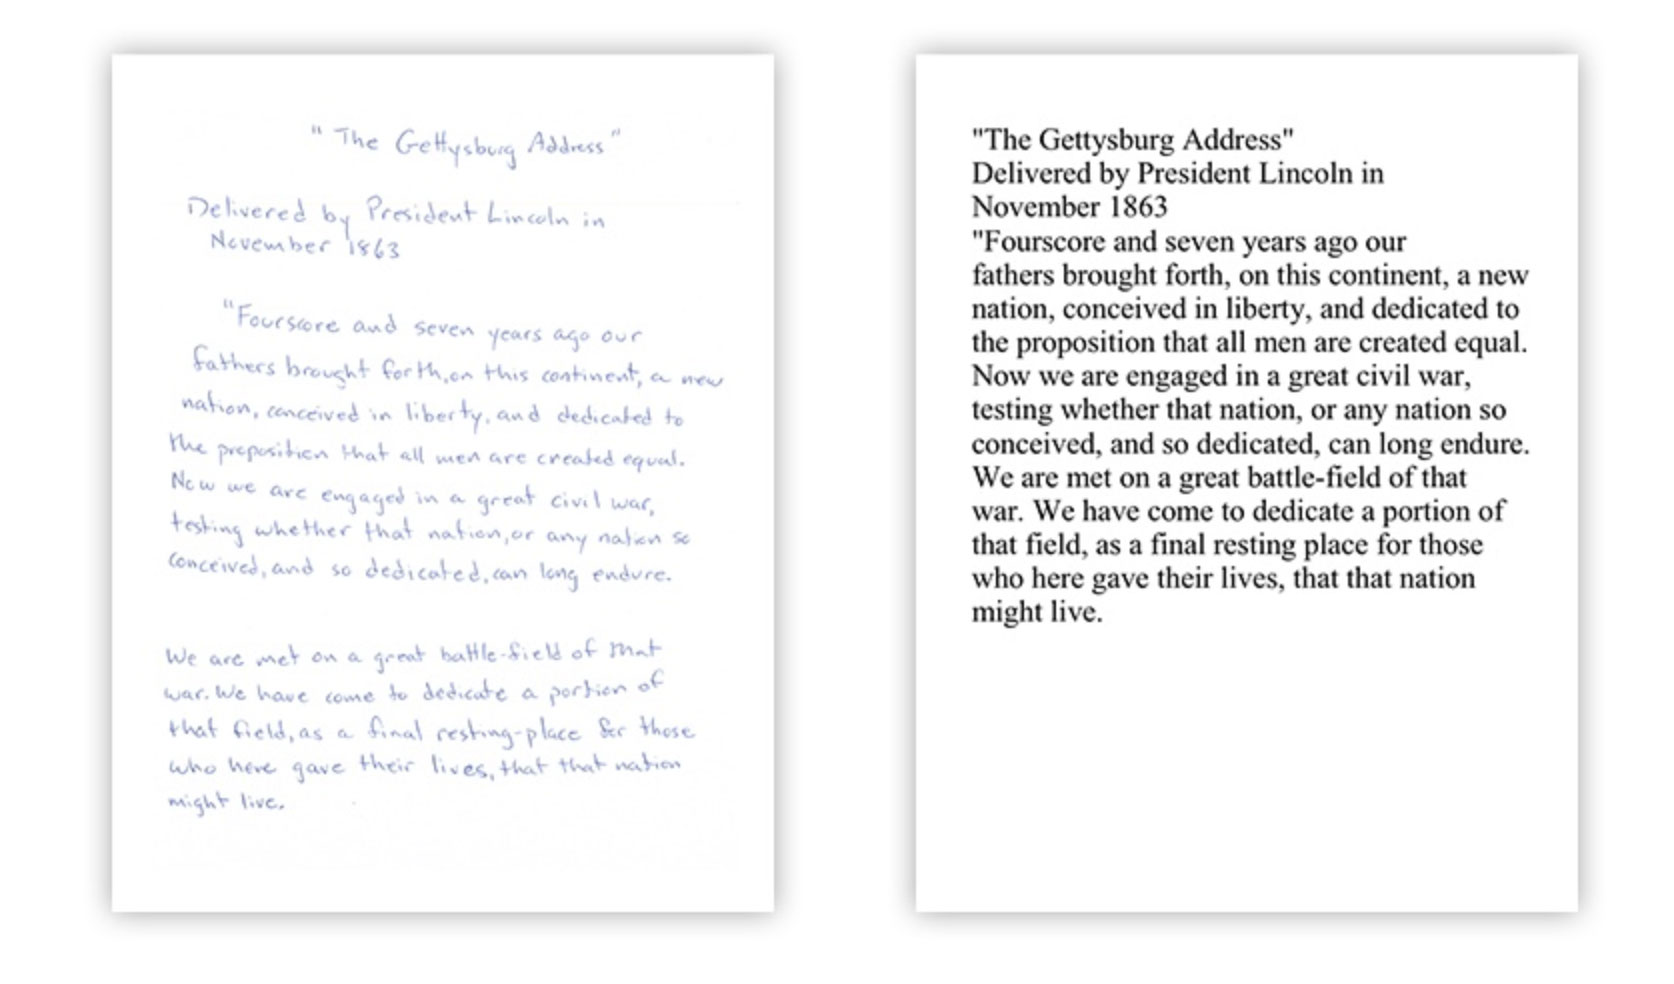 "The Gettysburg Address"
Delivered by President Lincoln in
November 1863
"Fourscore and seven years ago our
fathers brought forth, on this continent, a new
nation, conceived in liberty, and dedicated to
the proposition that all men are created equal.
Now we are engaged in a great civil war,
testing whether that nation, or any nation so
conceived, and so dedicated, can long endure.
We are met on a great battle-field of that
war. We have come to dedicate a portion of
that field, as a final resting-place for those
who here gave their lives, that that nation
might live.
"The Gettysburg Address"
Delivered by President Lincoln in
November 1863
"Fourscore and seven years ago our
fathers brought forth, on this continent, a new
nation, conceived in liberty, and dedicated to
the proposition that all men are created equal.
Now we are engaged in a great civil war,
testing whether that nation, or any nation so
conceived, and so dedicated, can long endure.
We are met on a great battle-field of that
war. We have come to dedicate a portion of
that field, as a final resting place for those
who here gave their lives, that that nation
might live.